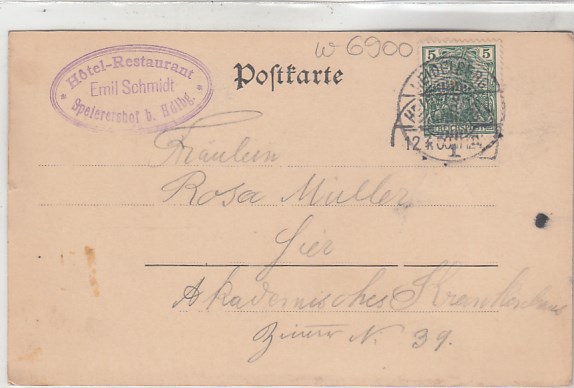 w 6900
Hôtel-Restaurant
Emil Schmidt
Speierershof b. Hdlbg.
Postkarte
5 5
HEIDELBERG
12
1.
Fräulein
Rosa Müller
Hier
Akademisches Krankenhaus
Zimmer N. 39.